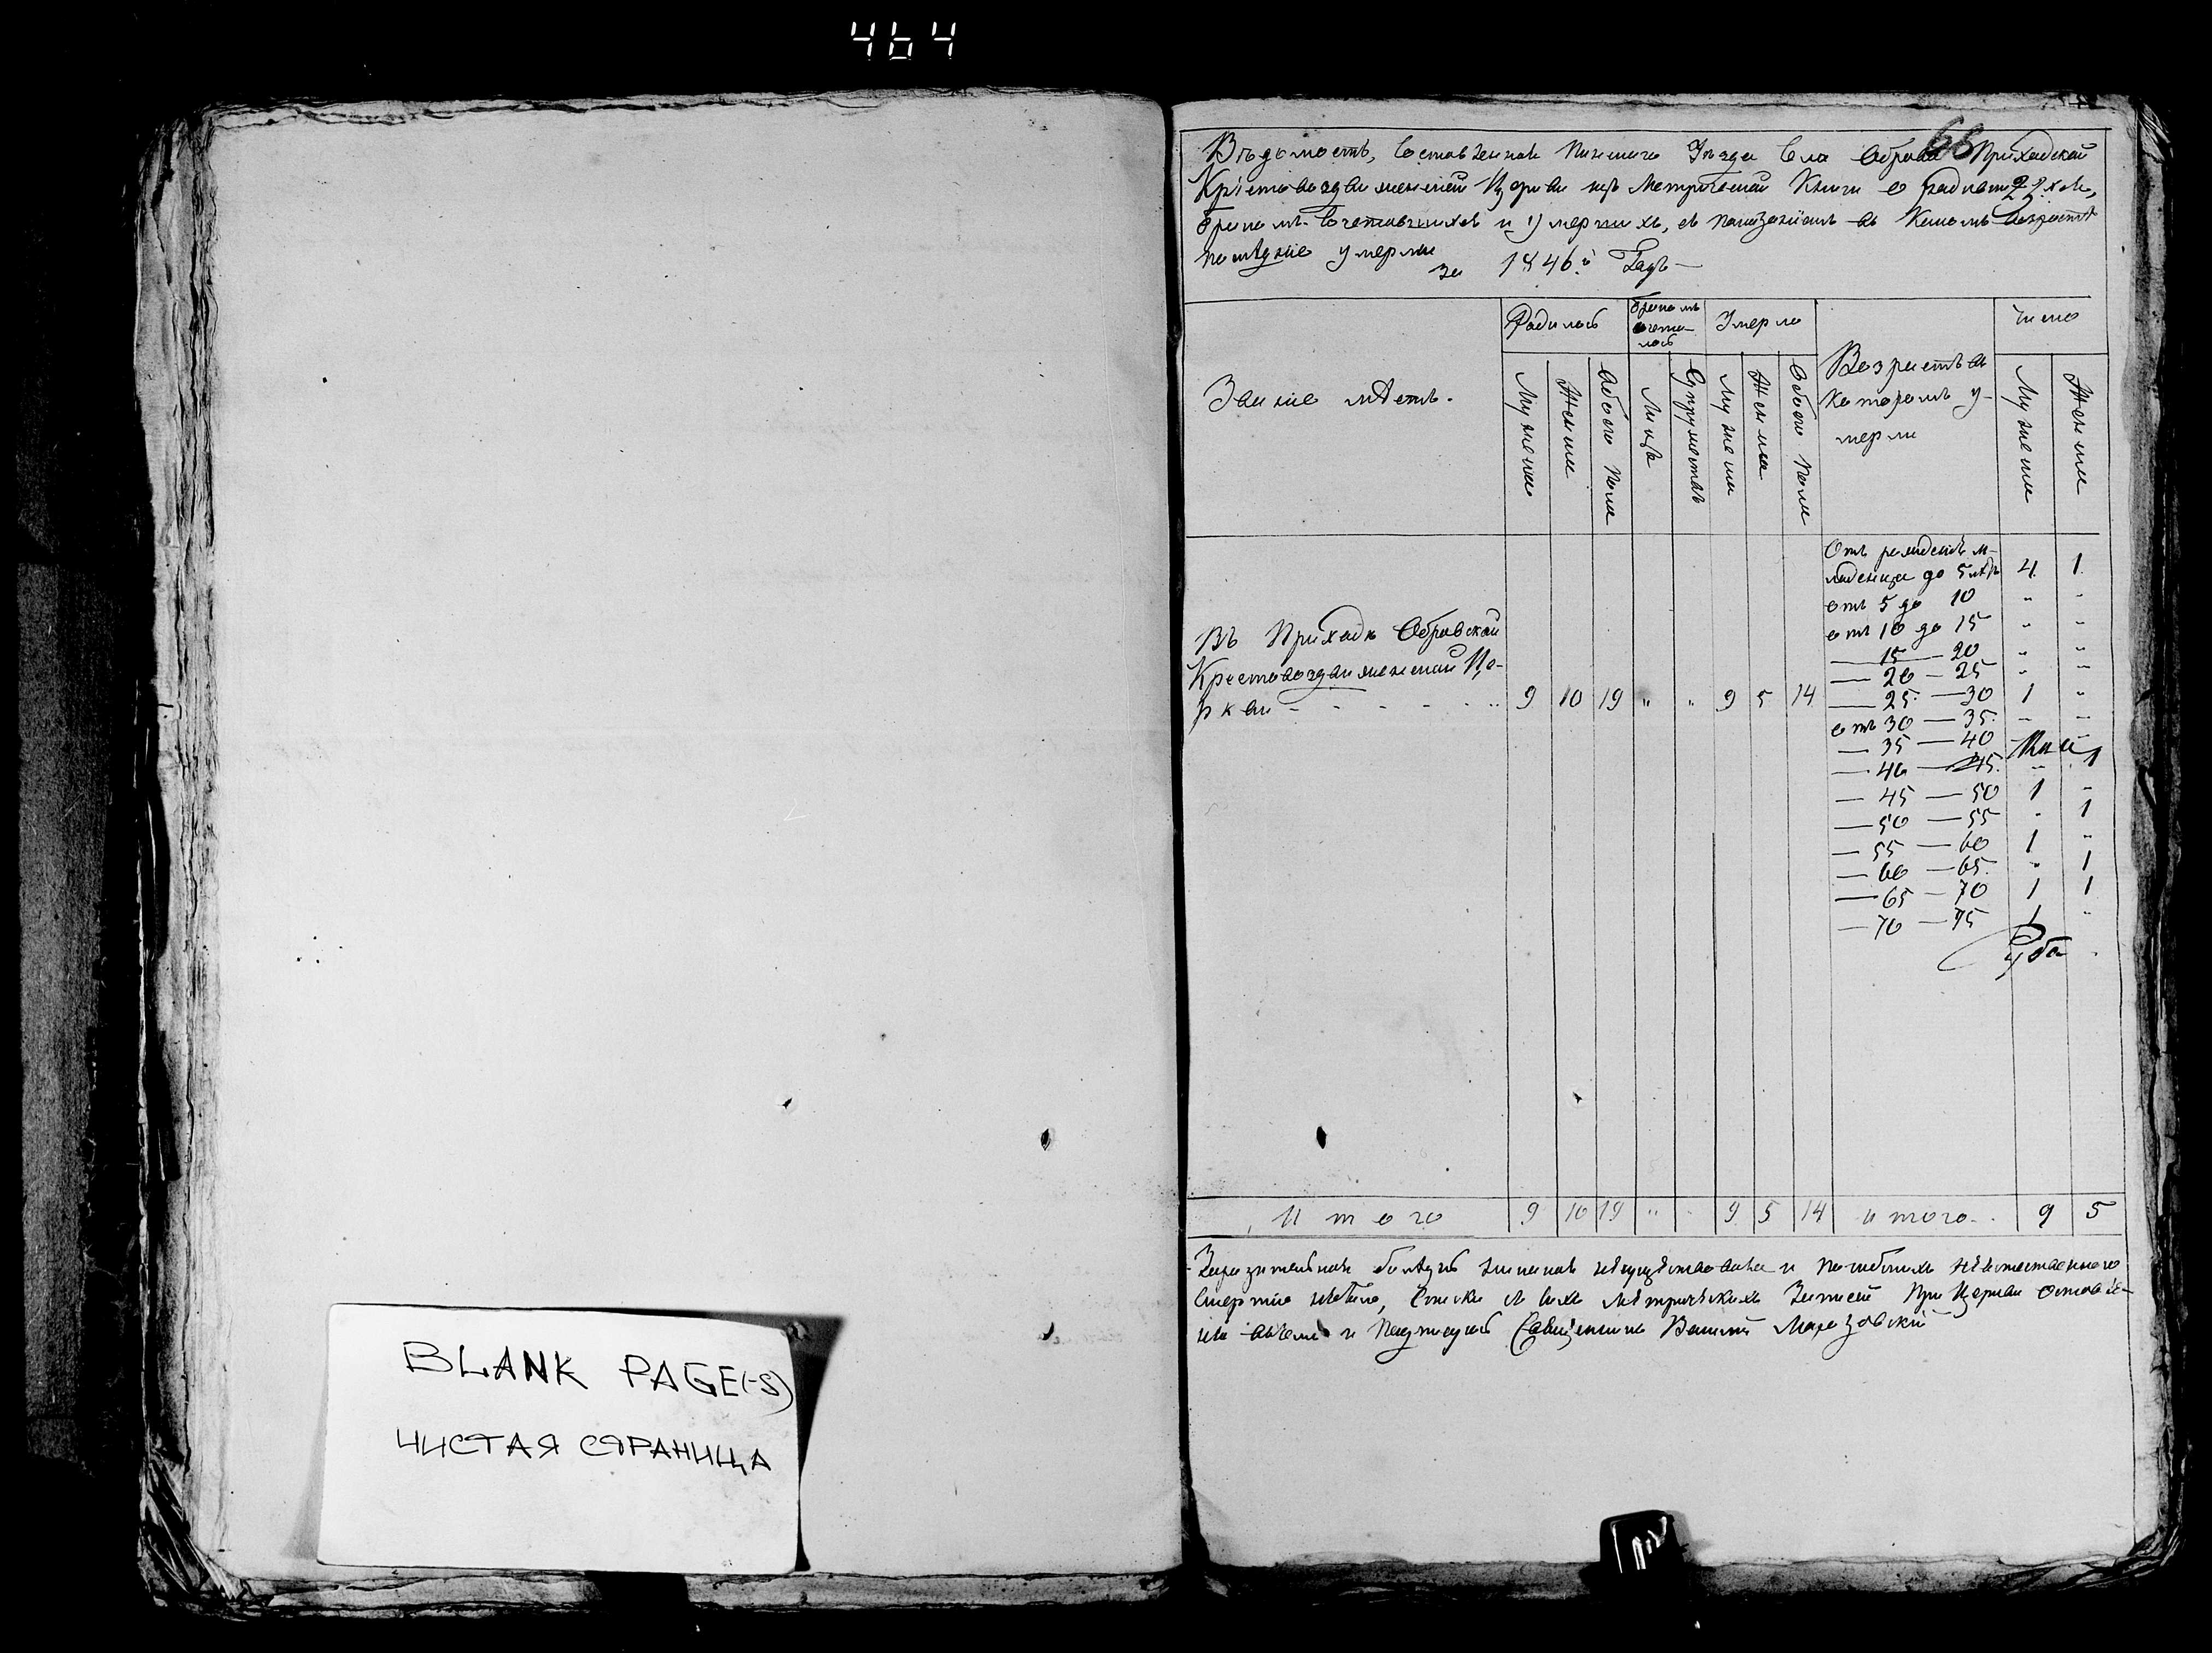 464
BLANK PAGE(-S)
ЧИСТАЯ СТРАНИЦА
66
Вѣдомость, составленная Пинскаго Уѣзда Села Оброва Приходской
Крестовоздвиженской Церкви изъ Метрической Книги о родившихся,
бракомъ сочетавшихся и умершихъ, съ показаніемъ въ какомъ возрастѣ
послѣдніе умерли
за 1846й Годъ
Званіе мѣстъ.
Родилось
бракомъ
сочета-
лось
Умерло
Возрастъ въ
которомъ у-
мерли
число
Мужеска
Женска
Обоего Пола
Лицъ
Супружествъ
Мужеска
Женска
Обоего Пола
Мужеска
Женска
Отъ рожденія м-
ладенца до 5 лѣтъ 4 1
отъ 5 до 10 " "
отъ 10 до 15 " "
— 15 — 20 " "
— 20 — 25 " "
— 25 — 30 1 "
отъ 30 — 35 " "
— 35 — 40
— 40 — 45 " 1
— 45 — 50 1 "
— 50 — 55 " 1
— 55 — 60 1 "
— 60 — 65 " 1
— 65 — 70 1 1
— 70 — 75 1 "
Въ Приходѣ Обровской
Крестовоздвиженской Це-
ркви - - - - - 9 10 19 " " 9 5 14
Итого 9 10 19 " " 9 5 14 итого 9 5
Заразительная болѣзнь никакая не существовала и погибшихъ неестественною
смертію небыло, списки съ сихъ метрическихъ записей при Церкви оставле-
ны въ чемъ и подписуюсь Священникъ Василій